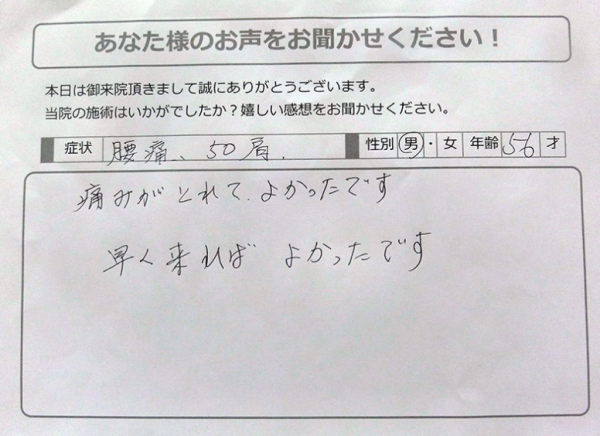 あなた様のお声をお聞かせください！
本日は御来院頂きまして誠にありがとうございます。
当院の施術はいかがでしたか？嬉しい感想をお聞かせください。
症状 腰痛、50肩. 性別 男・女 年齢 56 才
痛みがとれて、よかったです
早く来れば よかったです